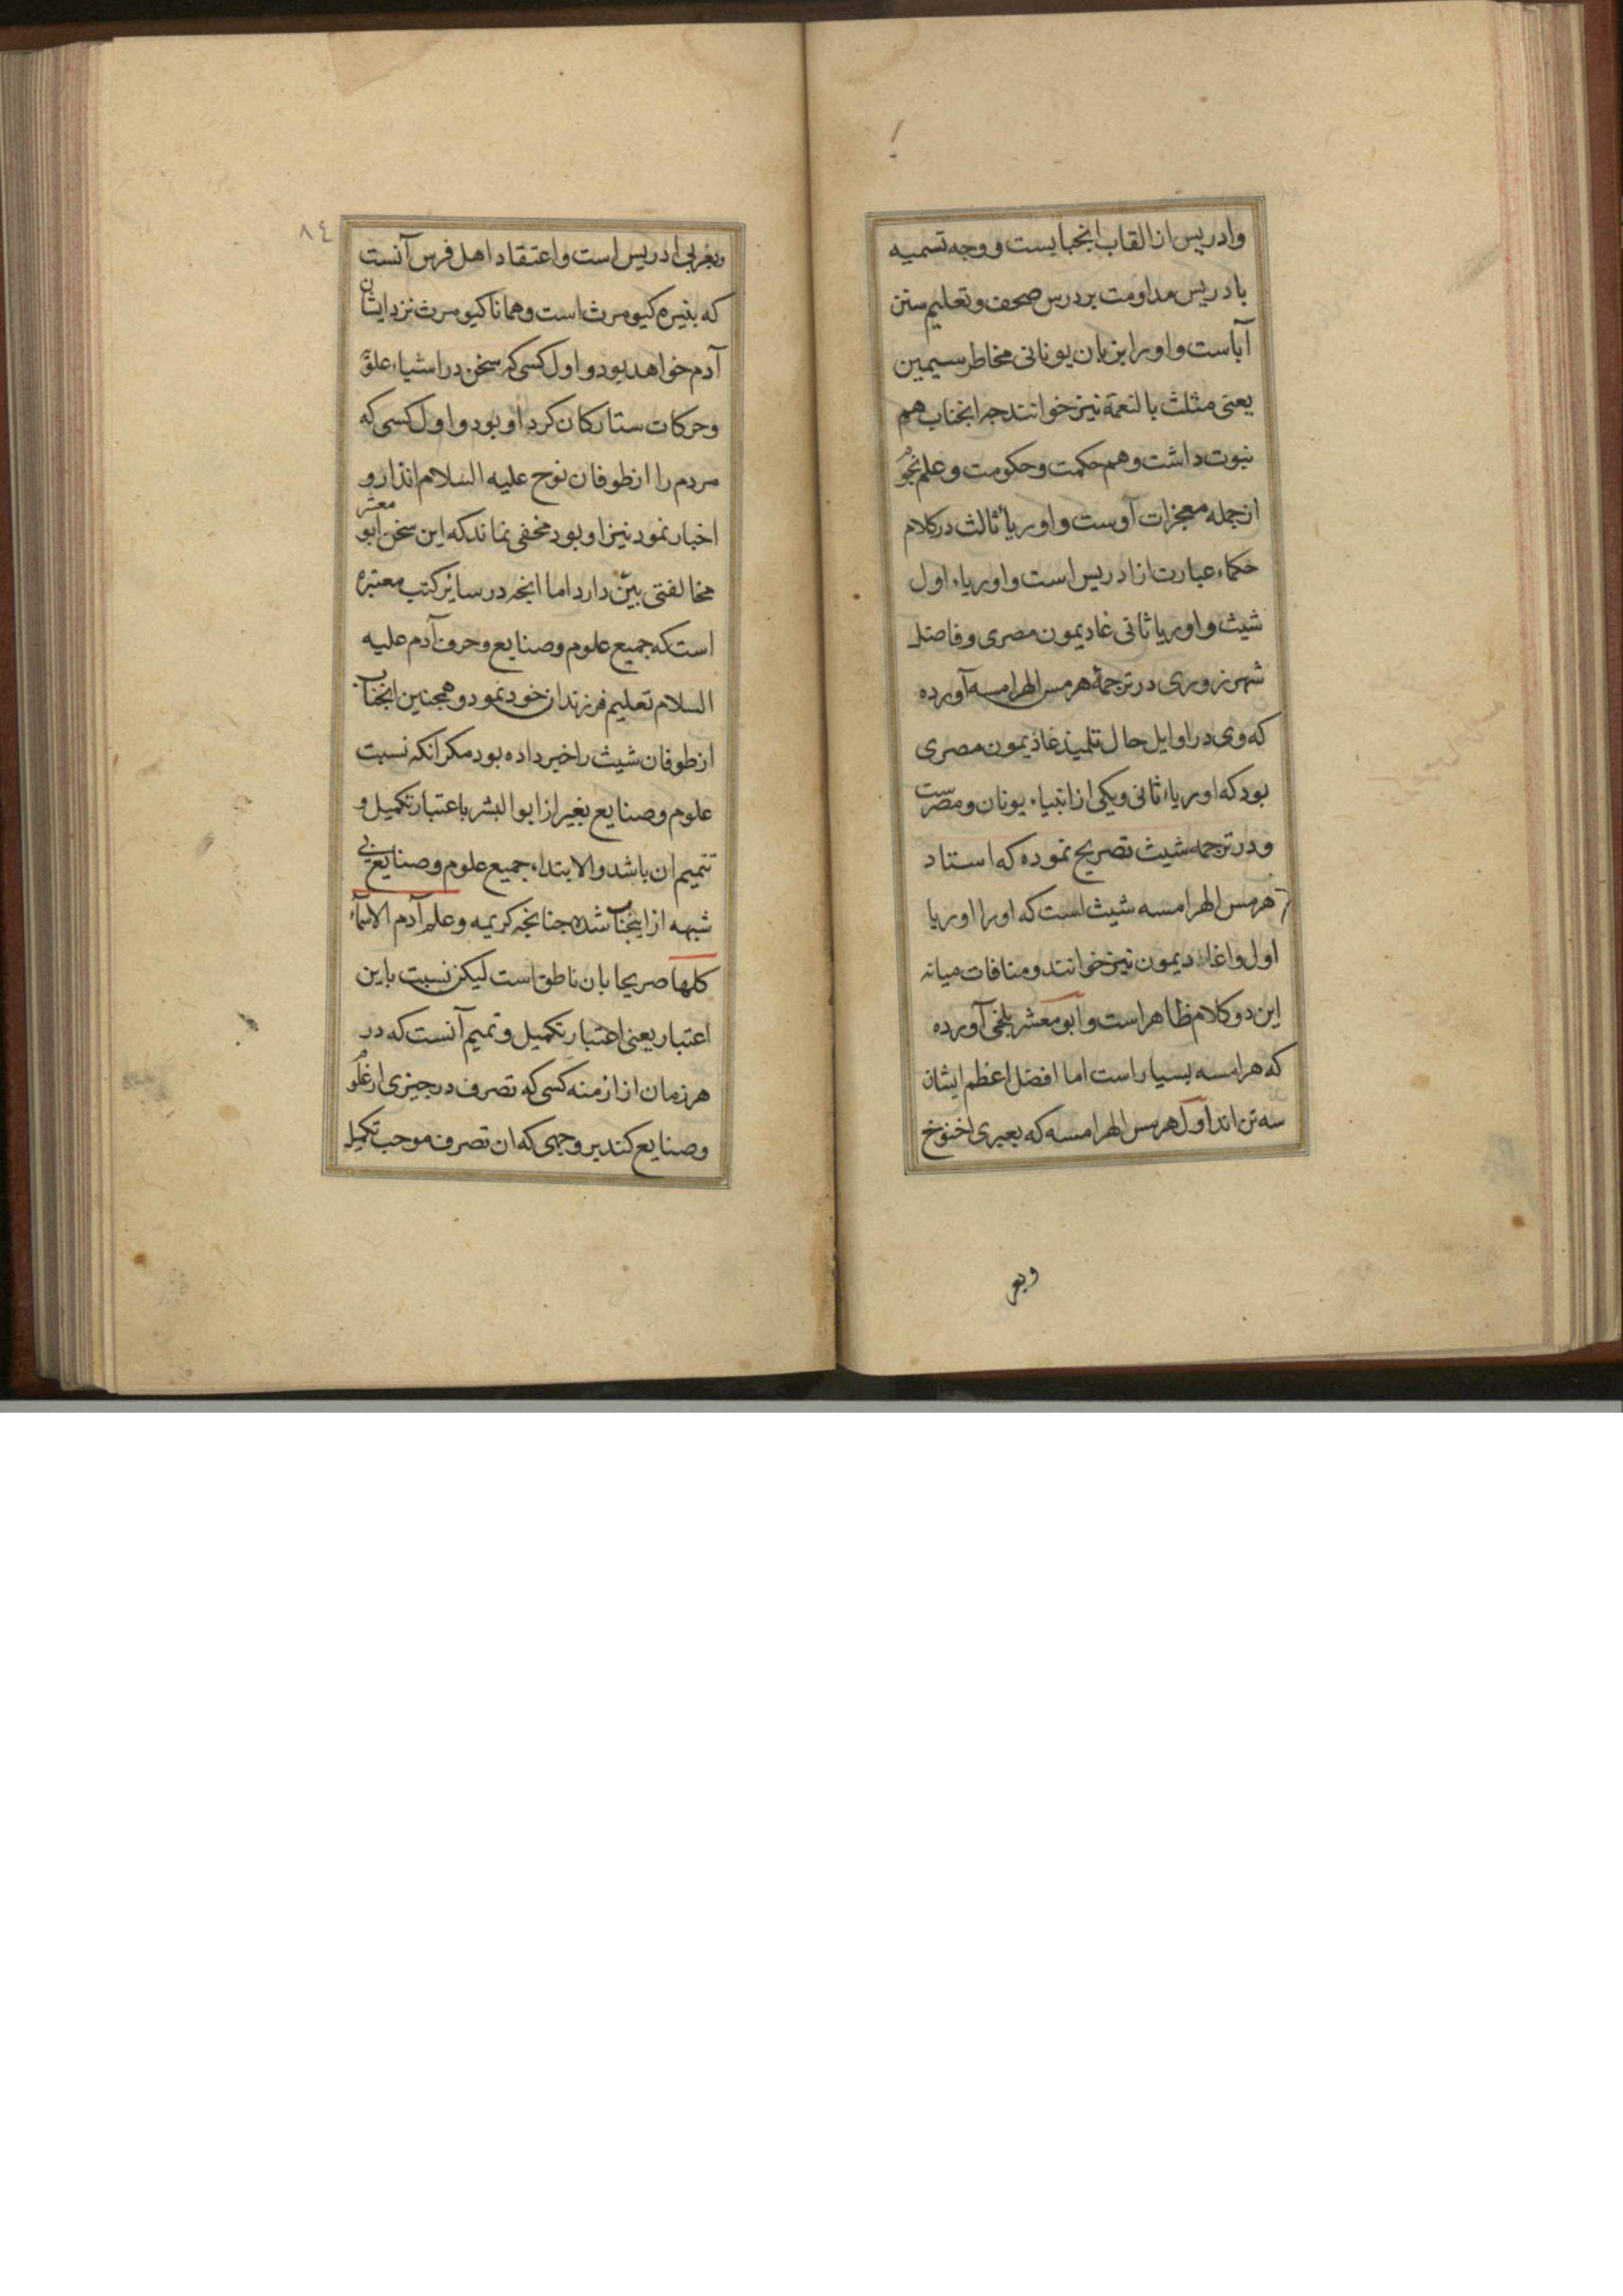 وادریس از القاب انجنابست و وجه تسمیه
بادریس مداومت بر درس صحف و تعلیم سنن
آباست و اورا بزبان یونانی مخاطر سیمین
یعنی مثلث بالنعمة نیز خوانند جه انجناب هم
نبوت داشت و هم حکمت و حکومت و علم نجوم
از جمله معجزات اوست و اوریأ ثالث در کلام
حکماء عبارت از ادریس است و اوریاء اول
شیث و اوریا ثانی غادیمون مصری و فاضل
شهرزوری در ترجمهٔ هرمس الهرامسه آورده
که وی در اوایل حال تلمیذ غاذیمون مصری
بود که اوریاء ثانی و یکی از انبیاء یونان و مصرست
و در ترجمه شیث تصریح نموده که استاد
هرمس الهرامسه شیث است که اورا اوریا
اول و اغاثادیمون نیز خوانند و منافات میانه
این دو کلام ظاهر است و ابو معشر بلخی آورده
که هرامسه بسیار است اما افضل اعظم ایشان
سه تن اند اول هرمس الهرامسه که بعبری اخنوخ
وبعر
٨٤
وبعربی ادریس است و اعتقاد اهل فرس آنست
که بنیره کیومرث است و همانا کیومرث نزد ایشان
آدم خواهد بود و اول کسی که سخن در اشیاء علوی
و حرکات ستارکان کرد او بود و اول کسی که
مردم را از طوفان نوح علیه السلام انذار و
اخبار نمود نیز او بود مخفی نماند که این سخن ابو معشر
مخالفتی بیّن دارد اما انجه در سائر کتب معتبره
است که جمیع علوم و صنایع و حرف آدم علیه
السلام تعلیم فرزندان خود نمود و همجنین انجناب
از طوفان شیث را خبر داده بود مکر انکه نسبت
علوم و صنایع بغیر از ابوالبشر باعتبار تکمیل و
تتمیم ان باشد والا ابتداء جمیع علوم و صنایع بی
شبهه از اینجناب شده جنانجه کریمه وعلم آدم الاسماء
کلها صریحا بان ناطق است لیکن نسبت باین
اعتبار یعنی اعتبار تکمیل و تمیم آنست که در
هر زمان از ازمنه کسی که تصرف در جیزی از علوم
و صنایع کند بر وجهی که ان تصرف موجب تکمیل